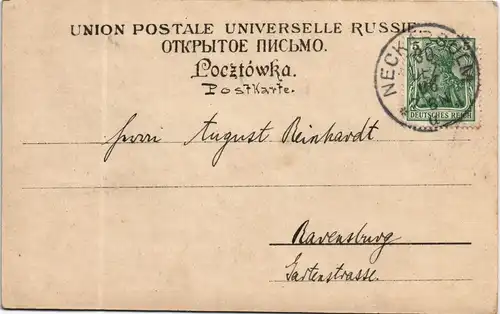 UNION POSTALE UNIVERSELLE RUSSIE
ОТКРЫТОЕ ПИСЬМО.
Pocztówka.
Postkarte.
5 5
DEUTSCHES REICH
Herrn August Reinhardt
Ravensburg
Gartenstrasse.